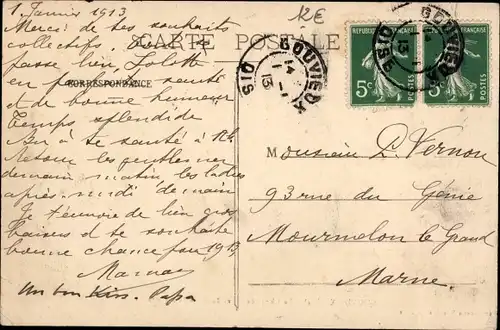 1 Janvier 1913
12€
Merci de tes souhaits
collectifs.
CARTE POSTALE
passe bien Lolotte
en santé
CORRESPONDANCE
et de bonne humeur
Temps splendide
à ta santé à
Retour les gentlemen
demain matin les ladies
après-midi demain
Je t'envoie de bien gros
baisers et te souhaite
bonne chance pour 1913
Maman
Un bon Kiss. Papa
GOUVIEUX
OISE
1-1
13
REPUBLIQUE FRANÇAISE
5c
POSTES
GOUVIEUX
OISE
13
REPUBLIQUE FRANÇAISE
5c
POSTES
Monsieur P. Vernon
93 rue du Génie
Mourmelon le Grand
Marne.